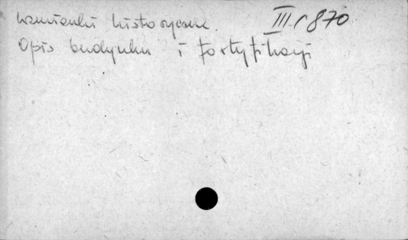 kamienki historyczne. III.1870
Opis budynku i fortyfikacji